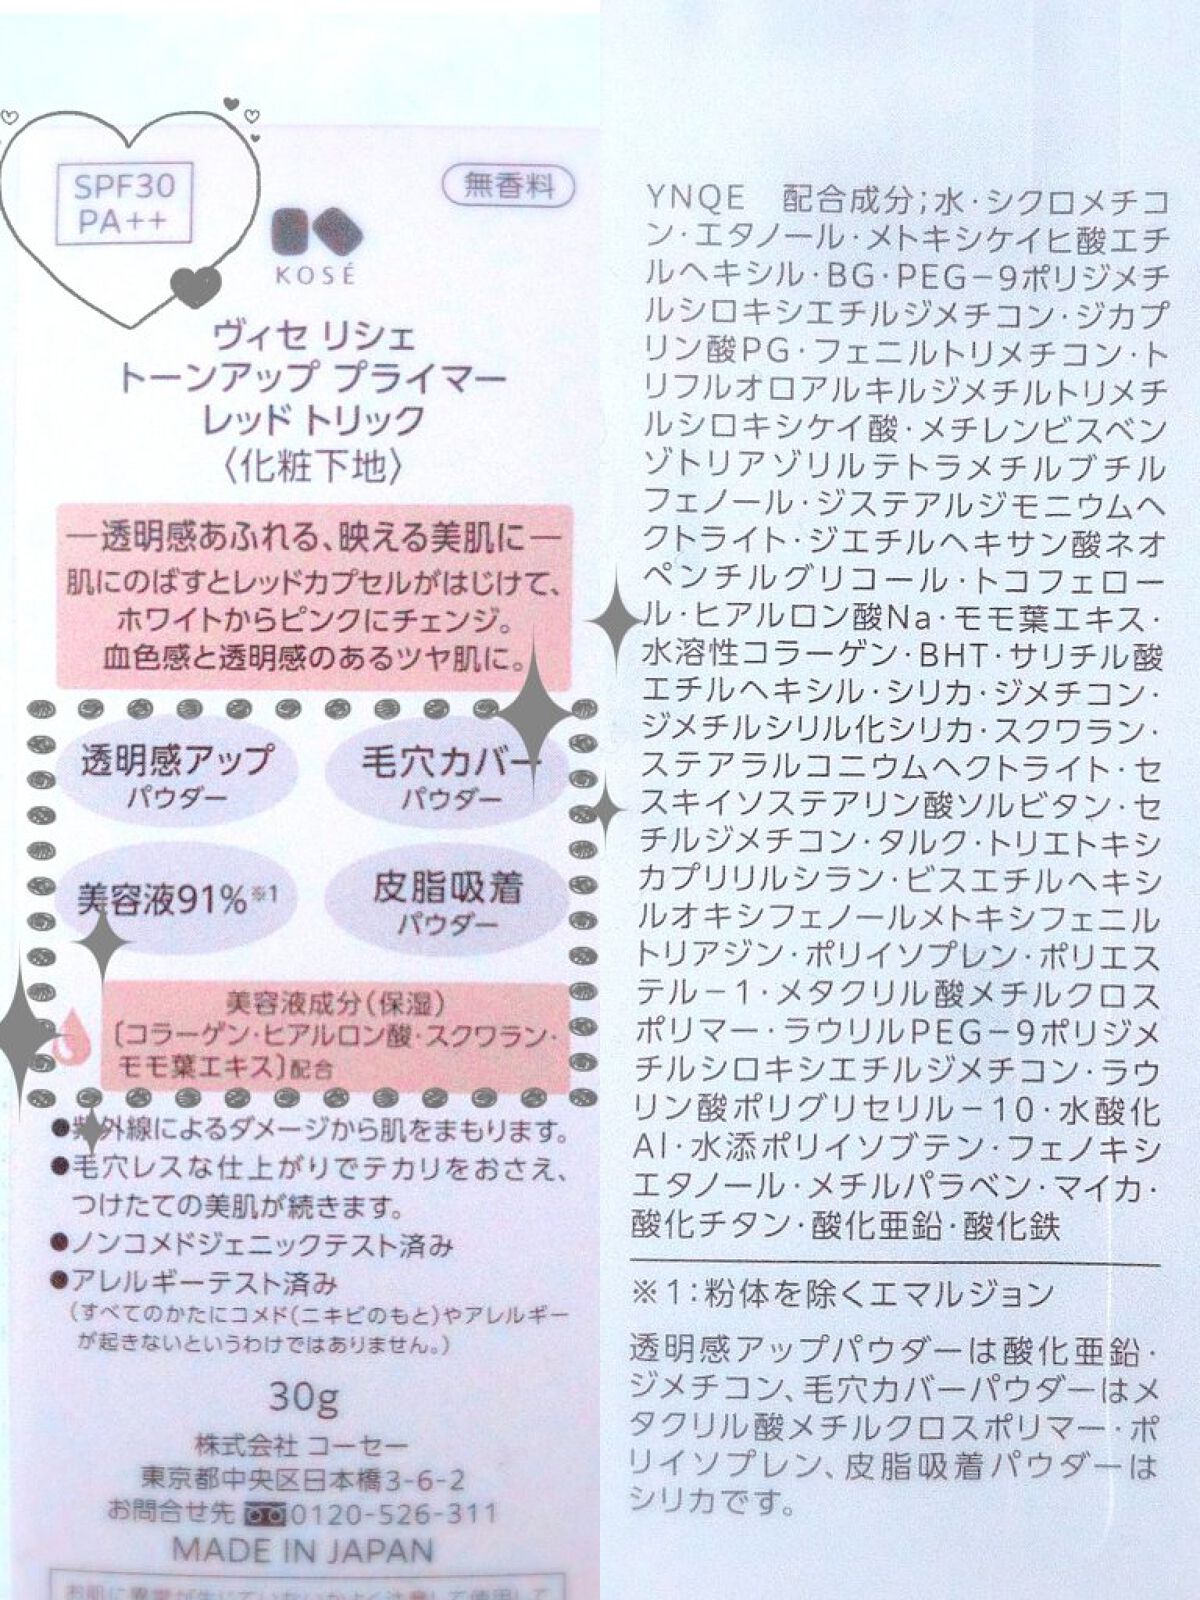 SPF30
PA++
無香料
KOSÉ
ヴィセ リシェ
トーンアップ プライマー
レッド トリック
〈化粧下地〉
―透明感あふれる、映える美肌に―
肌にのばすとレッドカプセルがはじけて、
ホワイトからピンクにチェンジ。
血色感と透明感のあるツヤ肌に。
透明感アップ
パウダー
毛穴カバー
パウダー
美容液91%※1
皮脂吸着
パウダー
美容液成分(保湿)
〔コラーゲン・ヒアルロン酸・スクワラン・
モモ葉エキス〕配合
●紫外線によるダメージから肌をまもります。
●毛穴レスな仕上がりでテカリをおさえ、
つけたての美肌が続きます。
●ノンコメドジェニックテスト済み
●アレルギーテスト済み
(すべてのかたにコメド(ニキビのもと)やアレルギー
が起きないというわけではありません。)
30g
株式会社 コーセー
東京都中央区日本橋3-6-2
お問合せ先 0120-526-311
MADE IN JAPAN
お肌に異常が生じていないかよく注意して使用して
YNQE 配合成分;水・シクロメチコ
ン・エタノール・メトキシケイヒ酸エチ
ルヘキシル・BG・PEG-9ポリジメチ
ルシロキシエチルジメチコン・ジカプ
リン酸PG・フェニルトリメチコン・ト
リフルオロアルキルジメチルトリメチ
ルシロキシケイ酸・メチレンビスベン
ゾトリアゾリルテトラメチルブチル
フェノール・ジステアルジモニウムヘ
クトライト・ジエチルヘキサン酸ネオ
ペンチルグリコール・トコフェロー
ル・ヒアルロン酸Na・モモ葉エキス・
水溶性コラーゲン・BHT・サリチル酸
エチルヘキシル・シリカ・ジメチコン・
ジメチルシリル化シリカ・スクワラン・
ステアラルコニウムヘクトライト・セ
スキイソステアリン酸ソルビタン・セ
チルジメチコン・タルク・トリエトキシ
カプリリルシラン・ビスエチルヘキシ
ルオキシフェノールメトキシフェニル
トリアジン・ポリイソプレン・ポリエス
テル-1・メタクリル酸メチルクロス
ポリマー・ラウリルPEG-9ポリジメ
チルシロキシエチルジメチコン・ラウ
リン酸ポリグリセリル-10・水酸化
Al・水添ポリイソブテン・フェノキシ
エタノール・メチルパラベン・マイカ・
酸化チタン・酸化亜鉛・酸化鉄
※1:粉体を除くエマルジョン
透明感アップパウダーは酸化亜鉛・
ジメチコン、毛穴カバーパウダーはメ
タクリル酸メチルクロスポリマー・ポ
リイソプレン、皮脂吸着パウダーは
シリカです。